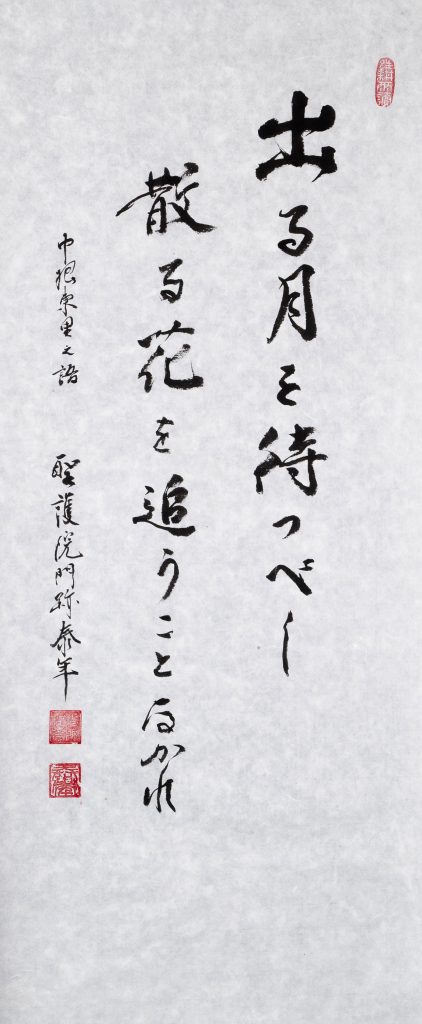 出る月を待つべし
散る花を追うことなかれ
中根東里之語
聖護院門跡泰年